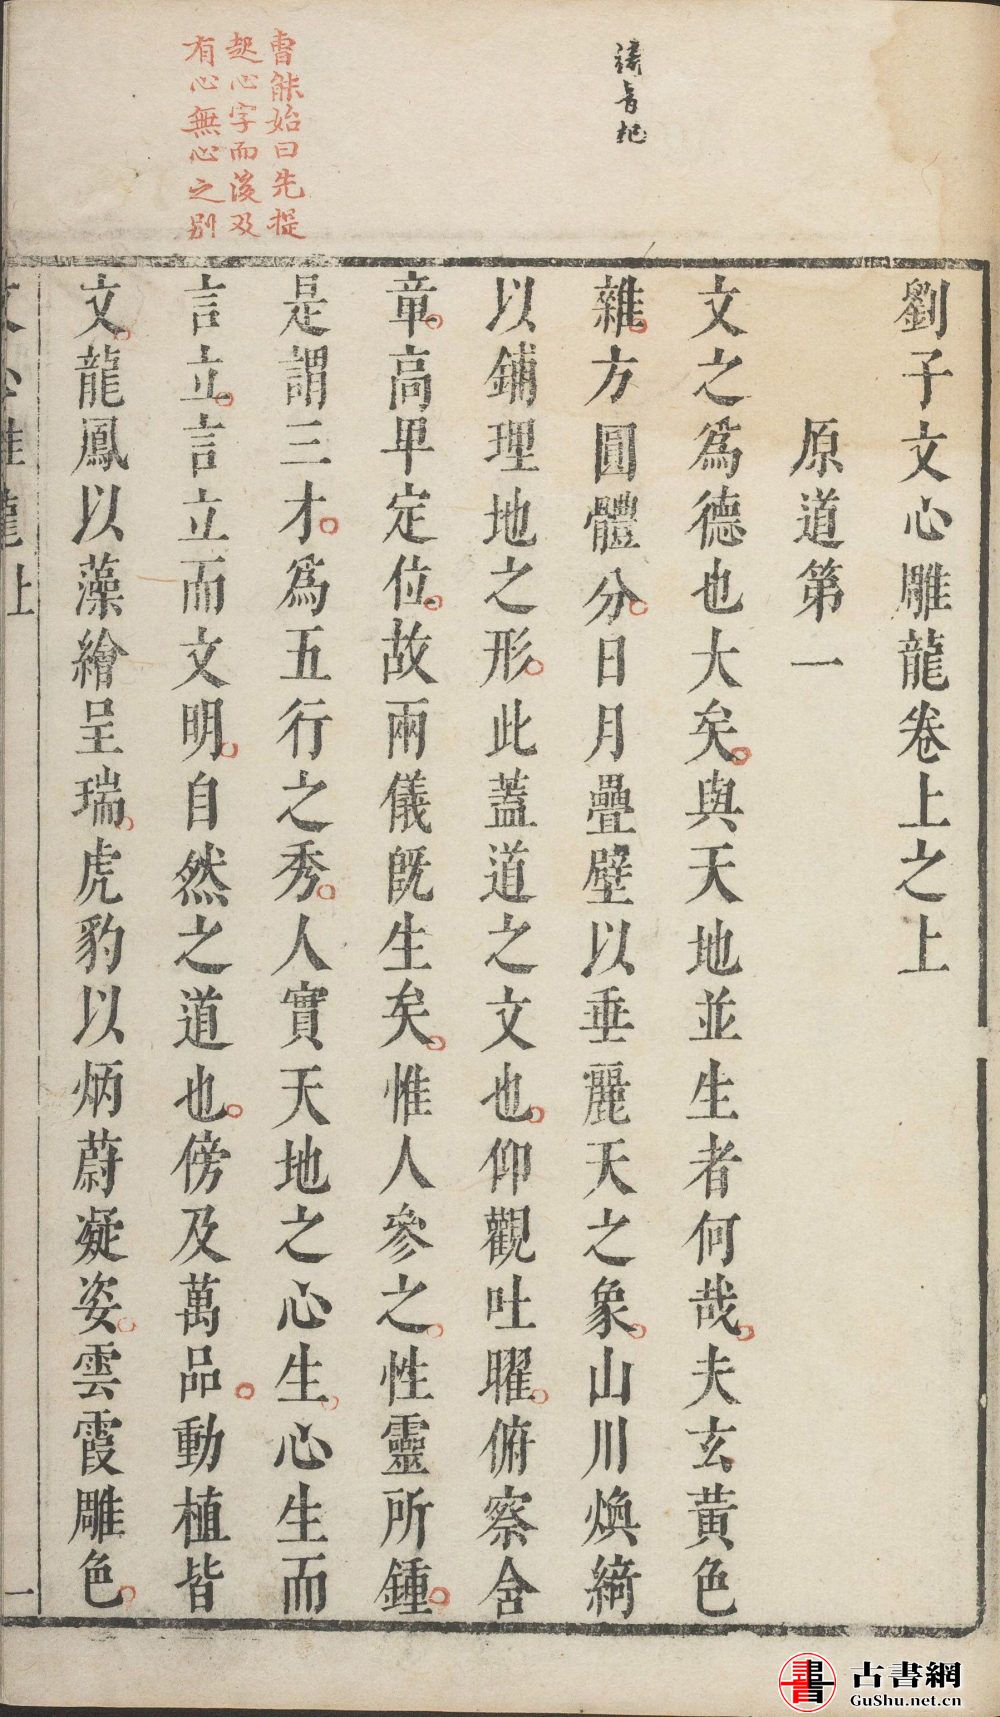 劉子文心雕龍卷上之上
原道第一
文之爲德也大矣與天地並生者何哉夫玄黃色
雜方圓體分日月疊璧以垂麗天之象山川煥綺
以鋪理地之形此蓋道之文也仰觀吐曜俯察含
章高卑定位故兩儀旣生矣惟人參之性靈所鍾
是謂三才爲五行之秀人實天地之心生心生而
言立言立而文明自然之道也傍及萬品動植皆
文龍鳳以藻繪呈瑞虎豹以炳蔚凝姿雲霞雕色
文心雕龍上
一
綺音杞
曹能始曰先提
起心字而後及
有心無心之别
古書網
GuShu.net.cn